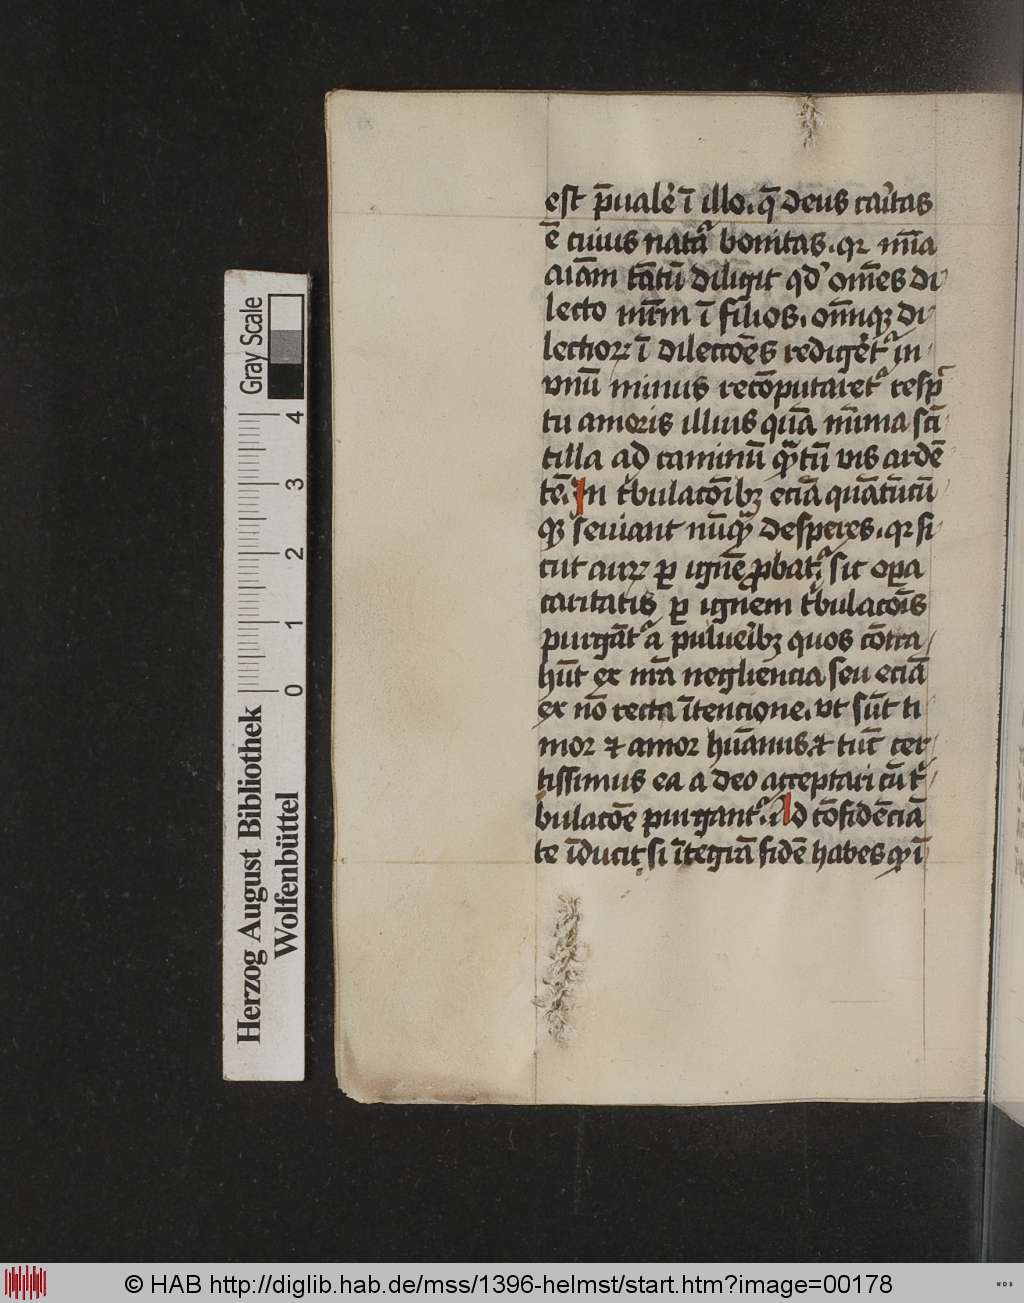 est p̄ualē ī illo. q̄ deus caītas
ē cuius natā bonitas. qꝛ nīa
aīam tātū diligit qd̓ om̄es di
lecto nr̄m ī filios. om̄iqꝫ di
lectioꝝ ī dilectōes redigēt in
vnū minus recōputaret᷑ resp̄
tu amoris illius quā mīma scī
tilla ad caminū qᷓtū vis ardē
tē. In t̓bulacōibꝫ eciā quātūcū
qꝫ seuiant nūqᷓ desperes. qꝛ si
cut auꝝ ꝑ ignē ꝓbat᷑ sic oꝑa
caritatis ꝑ ignem t̓bulacōis
purgāt᷑ a puluēibꝫ quos cōtra
hūt ex nr̄a negliencia seu eciā
ex nō recta ītencione. vt sūt ti
mor ⁊ amor hūanus. ⁊ tūc cer
tissimus ea a deo acceptari cū t̓
bulacōe purgant᷑. Ad cōfidēciā
te īducit si ītegrā fidē habes qꝫ ī
Herzog August Bibliothek
Wolfenbüttel
0 1 2 3 4
Gray Scale
© HAB http://diglib.hab.de/mss/1396-helmst/start.htm?image=00178